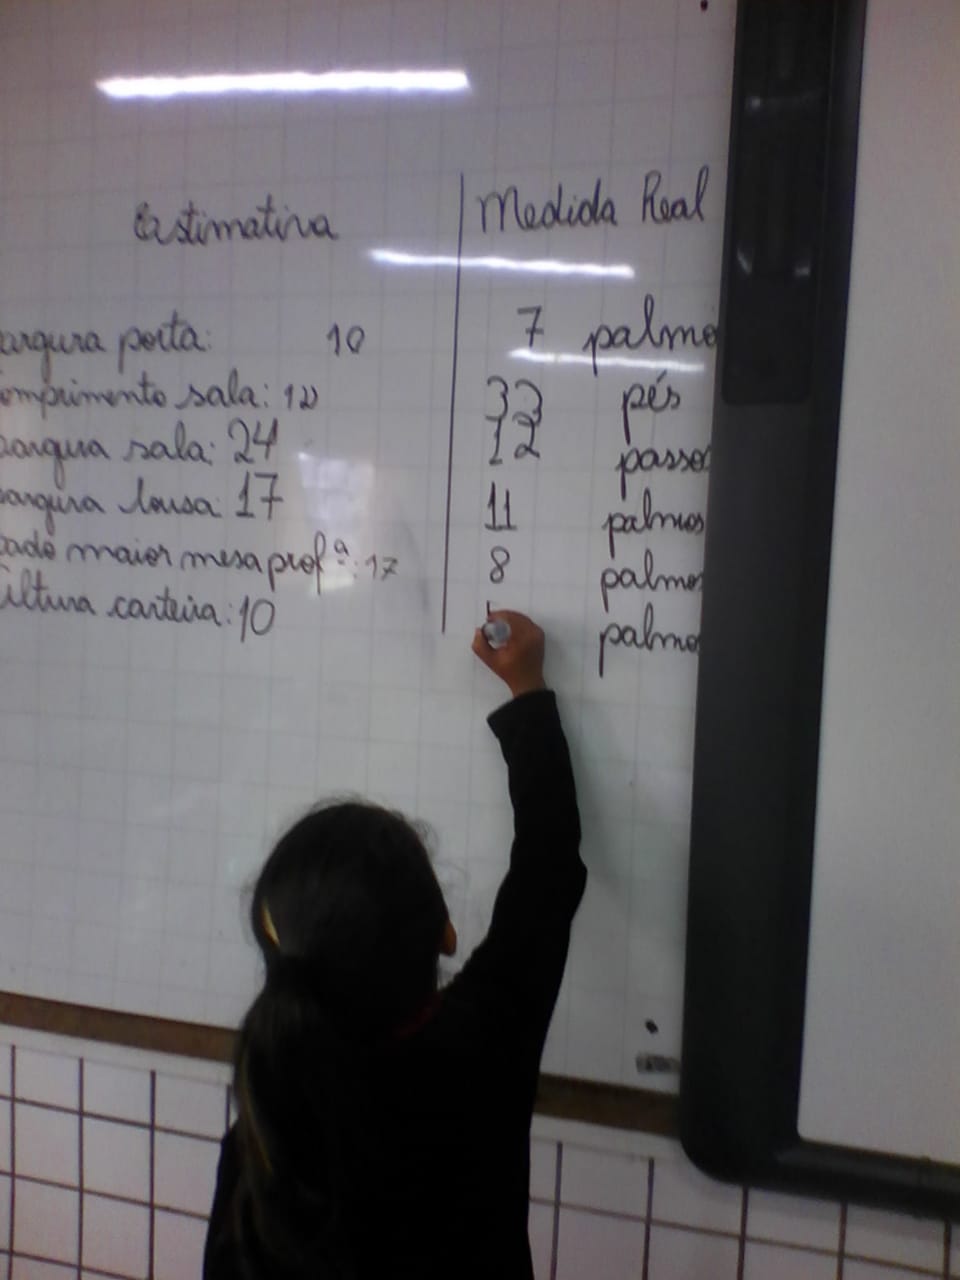 Estimativa Medida Real
argura porta: 10 7 palmo
omprimento sala: 12 33 pés
argura sala: 24 12 passo
argura lousa: 17 11 palmos
ado maior mesa profª: 17 8 palmo
ltura carteira: 10 palmo